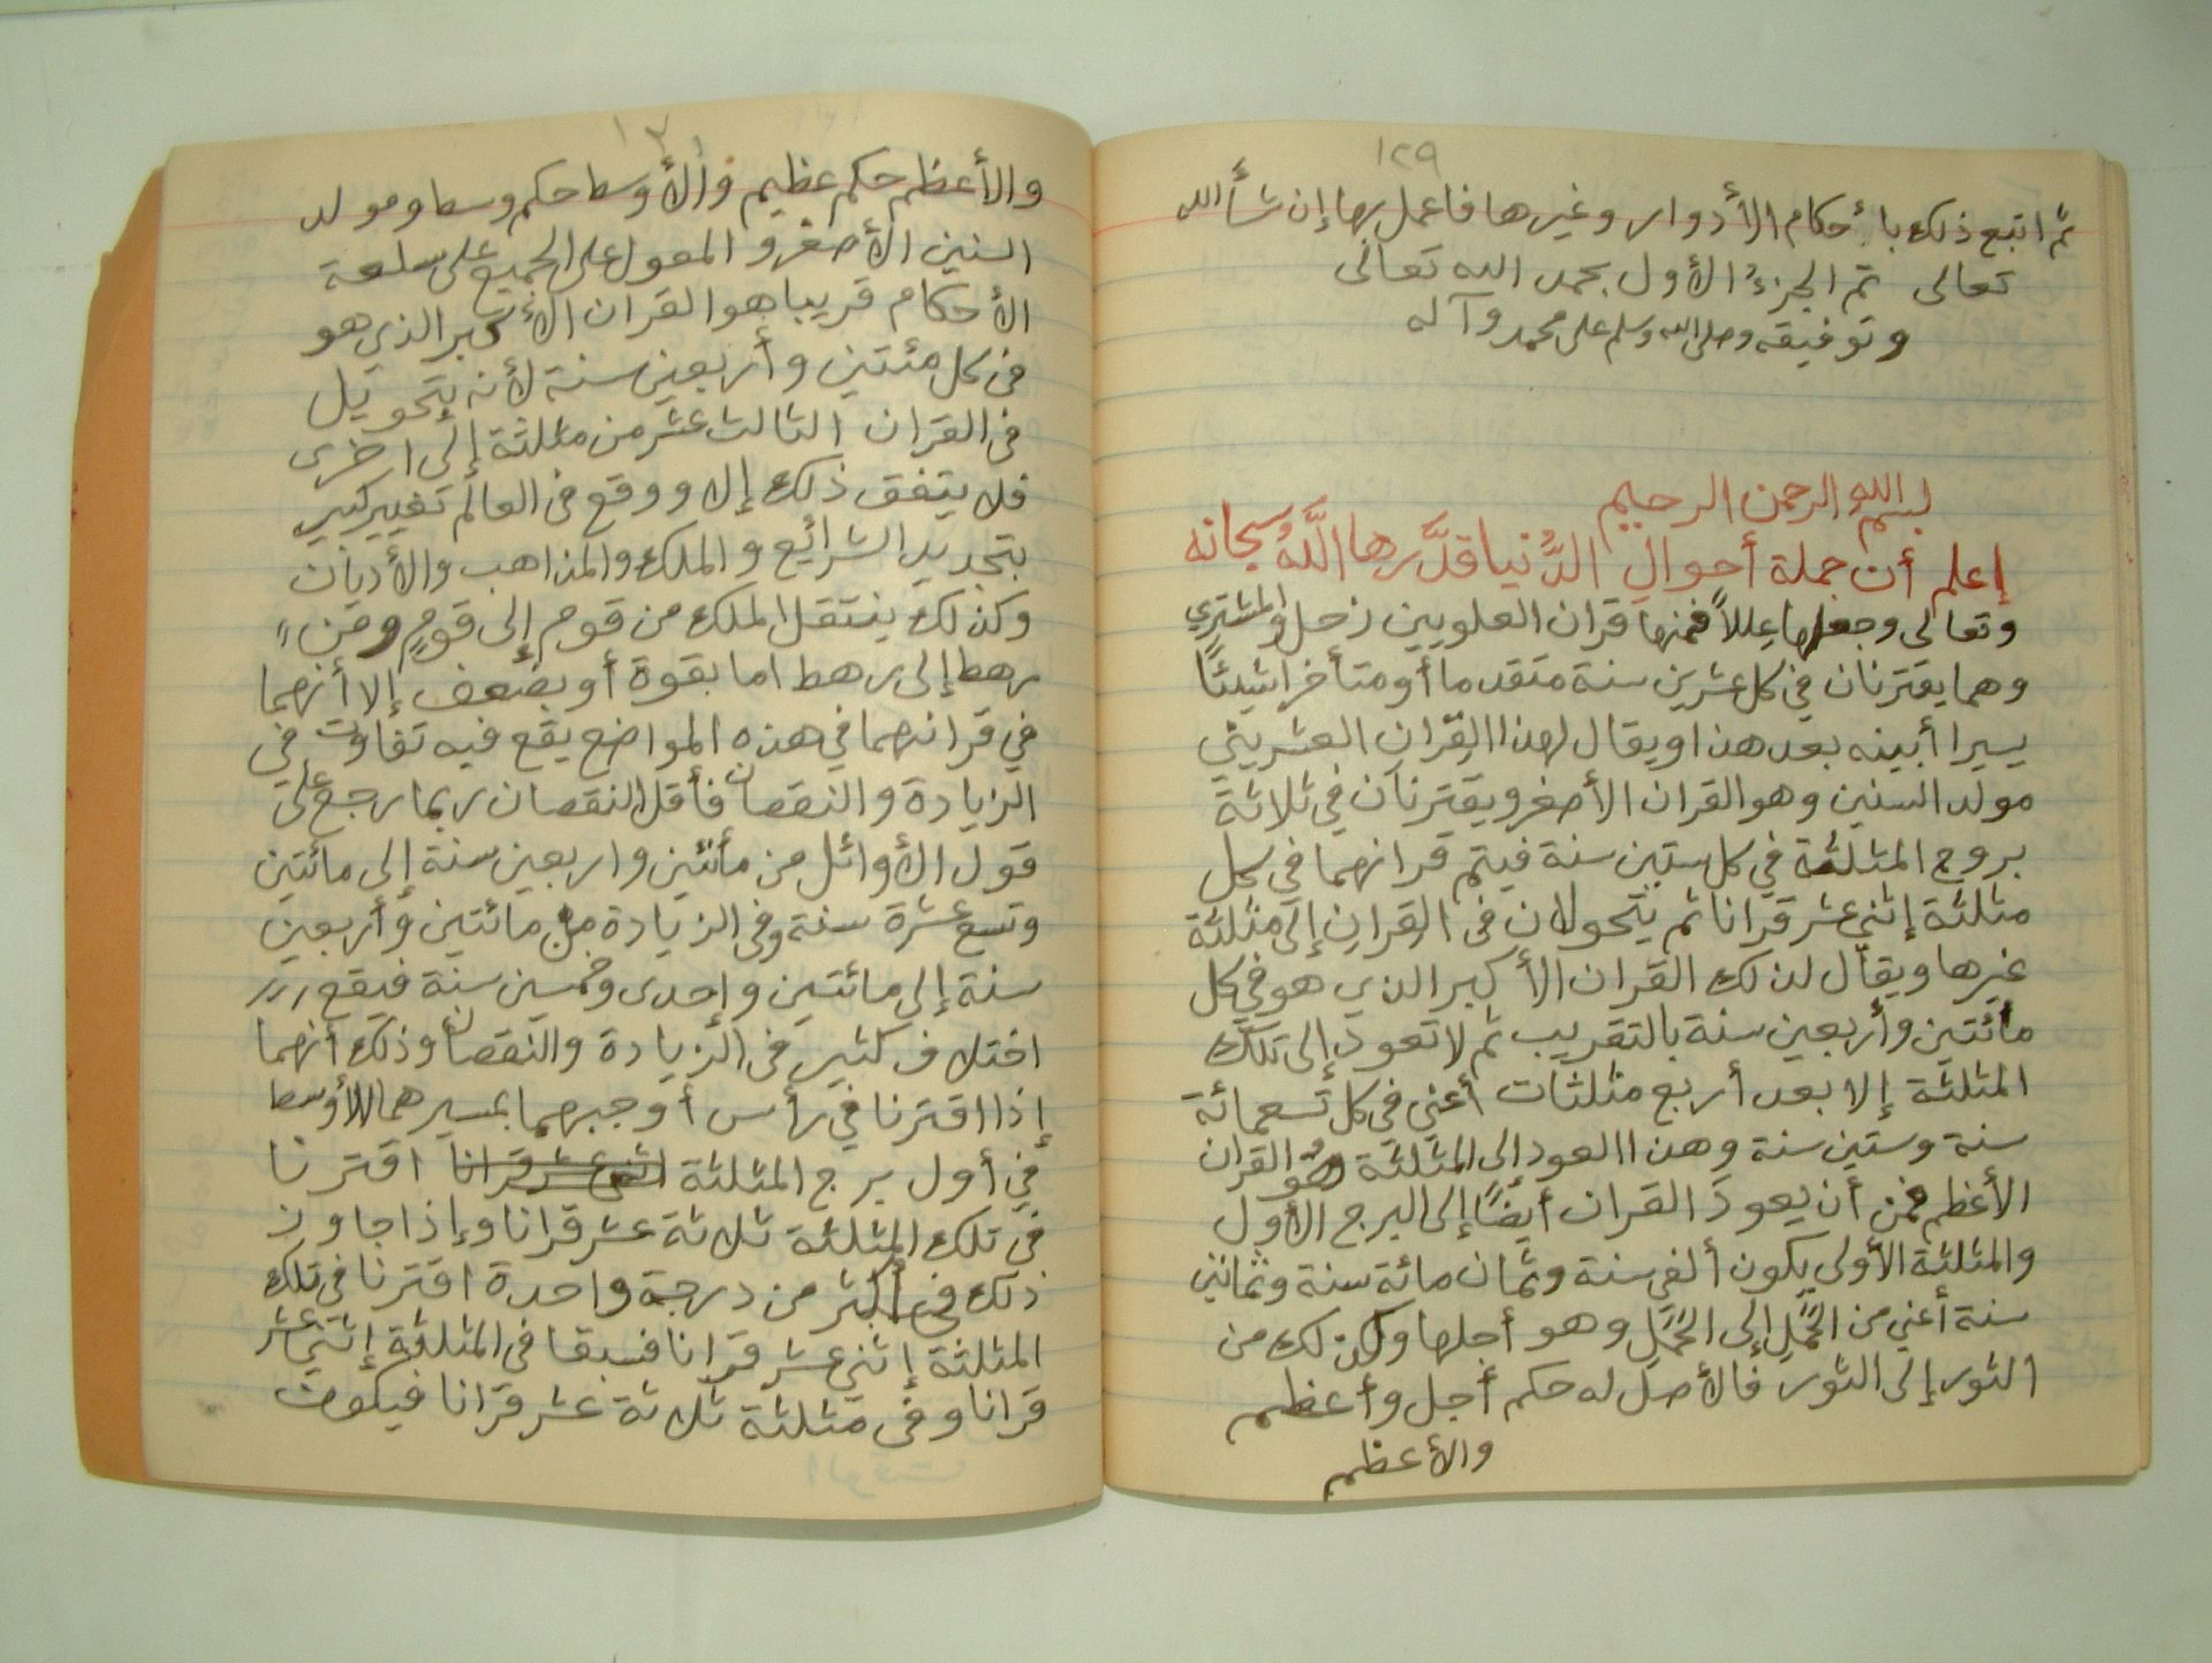 ١٢٩
ثم اتبع ذلك بأحكام الأدوار وغيرها فاعمل بها إن شأ الله
تعالى تم الجزء الأول بحمد الله تعالى
وتوفيقه وصلى الله وسلم على محمد وآله
بسم الله الرحمن الرحيم
إعلم أن جملة أحوالِ الدُّنيا قدَّرها اللَّهُ سبحانه
وتعالى وجعلها عِللاً فمنها قران العلويين زحل والمشتري
وهما يقترنان في كل عشرين سنة متقدما أو متأخرا شيئًا
يسيرا أبينه بعد هذا ويقال لهذا القران العشريني
مولد السنين وهو القران الأصغر ويقترنان في ثلاثة
بروج المثلثة في كل ستين سنة فيتم قرانهما في كل
مثلثة إثني عشر قرانا ثم يتحولان في القران إلى مثلثة
غيرها ويقال لذلك القران الأكبر الذي هو في كل
مائتين وأربعين سنة بالتقريب ثم لا تعود إلى تلك
المثلثة إلا بعد أربع مثلثات أعني في كل تسعمائة
سنة وستين سنة وهذا العود إلى المثلثة هو القران
الأعظم فمن أن يعود القران أيضًا إلى البرج الأول
والمثلثة الأولى يكون ألفي سنة وثمان مائة سنة وثمانين
سنة أعني من الحَمَلِ إلى الحَمَلِ وهو أجلها وكذلك من
الثور إلى الثور فالأصل له حكم أجل وأعظم
والأعظم
والأعظم حكم عظيم والأوسط حكم وسط ومولد
السنين الأصغر والمعول على الجميع على سلعة
الأحكام قريبا هو القران الأكبر الذي هو
في كل مئتين وأربعين سنة لأنه يتحويل
في القران الثالث عشر من مثلثة إلى اخرى
فلا يتفق ذلك إلا ووقع في العالم تغيير كبير
بتجديد الشرائع والملك والمذاهب والأديان
وكذلك ينتقل الملك من قوم إلى قومٍ ومن
رهط إلى رهط اما بقوة أو بضعف إلا أنهما
في قرانهما في هذه المواضع يقع فيه تفاوت في
الزيادة والنقصان فأقل النقصان ربما رجع على
قول الأوائل من مأئتين واربعين سنة إلى مائتين
وتسع عشرة سنة وفي الزيادة من مائتين وأربعين
سنة إلى مائتين وإحدى وخمسين سنة فيقع
اختلاف كثير في الزيادة والنقصان وذلك أنهما
إذا اقترنا في رأس أوجبهما بمسيرهما الأوسط
في أول برج المثلثة اثنى عشر قرانا اقترنا
في تلك المثلثة ثلاثة عشر قرانا وإذا جاوز
ذلك في أكثر من درجة واحدة اقترنا في تلك
المثلثة إثني عشر قرانا فسبقا في المثلثة إثني عشر
قرانا وفي مثلثة ثلاثة عشر قرانا فيكون